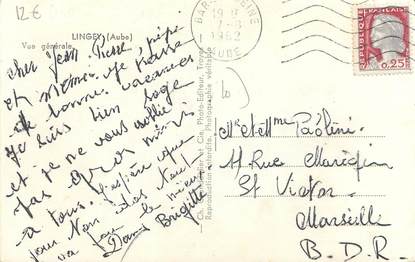 12€
LINGEY (Aube)
Vue générale
cher Jean Pierre, pépé
et mémée. Je passe
de bonne vacances
Je suis bien sage
et je ne vous oublie
pas gros mimis
à tous. J'espère que
pour Non
va pour le mieux
Brigitte
Ch. et Cie, Photo-Editeur, Troyes
Reproduction interdite. Photographie véritable
BAR SEINE
19 H
7-8
1962
AUBE
REPUBLIQUE FRANÇAISE
0,25
Mr et Mme Paoleni
11 Rue
St Victor
Marseille
B.D.R.